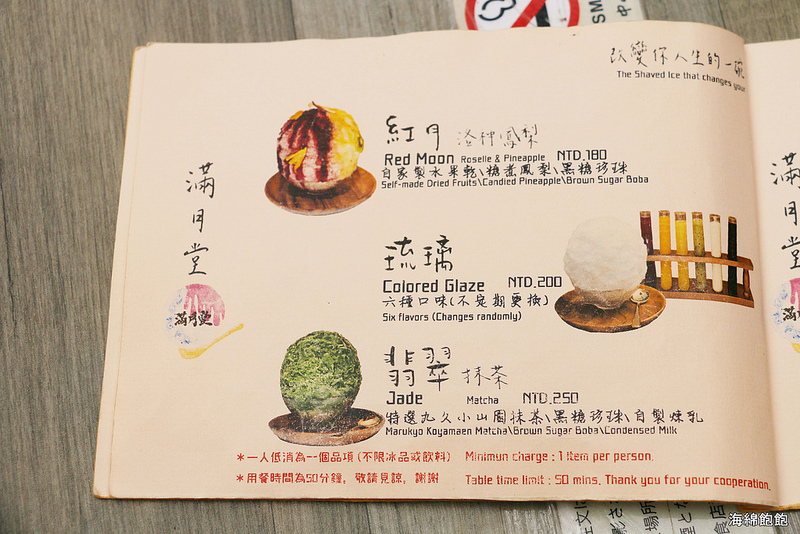 改變你人生的一碗
The Shaved Ice that changes your
滿月堂
滿月堂
紅月 洛神鳳梨
Red Moon Roselle & Pineapple NTD.180
自家製水果乾\糖煮鳳梨\黑糖珍珠
Self-made Dried Fruits\Candied Pineapple\Brown Sugar Boba
琉璃
Colored Glaze NTD.200
六種口味(不定期更換)
Six flavors (Changes randomly)
翡翠 抹茶
Jade Matcha NTD.250
特選丸久小山園抹茶\黑糖珍珠\自製煉乳
Marukyo Koyamaen Matcha\Brown Sugar Boba\Condensed Milk
*一人低消為一個品項(不限冰品或飲料) Minimun charge : 1 item per person.
*用餐時間為50分鐘, 敬請見諒, 謝謝 Table time limit : 50 mins. Thank you for your cooperation.
滿月堂
海綿飽飽